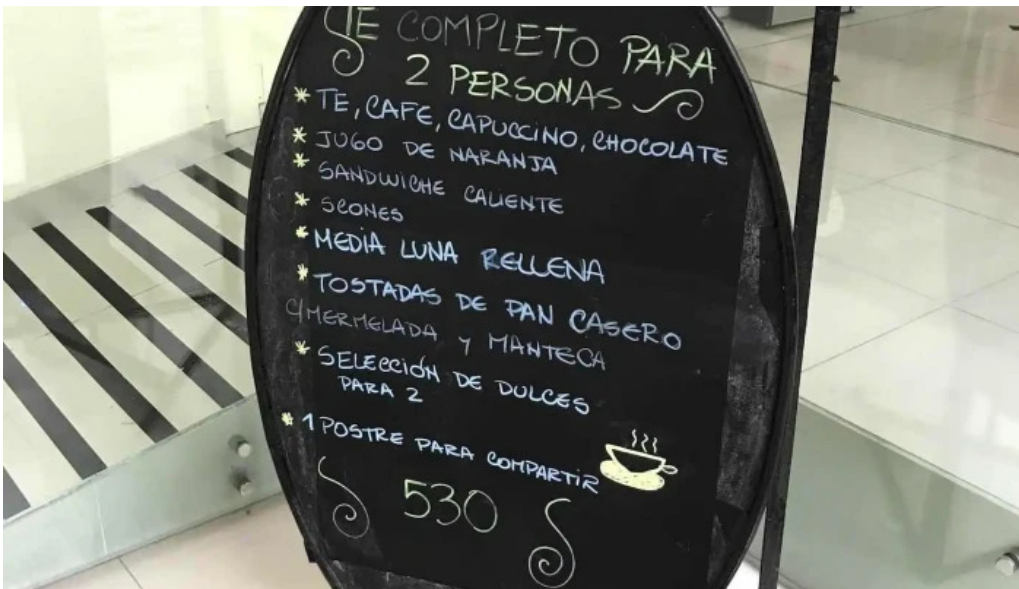 TE COMPLETO PARA
2 PERSONAS
* TE, CAFE, CAPUCCINO, CHOCOLATE
* JUGO DE NARANJA
* SANDWICHE CALIENTE
* SCONES
* MEDIA LUNA RELLENA
* TOSTADAS DE PAN CASERO
C/MERMELADA Y MANTECA
* SELECCIÓN DE DULCES
PARA 2
* 1 POSTRE PARA COMPARTIR
530